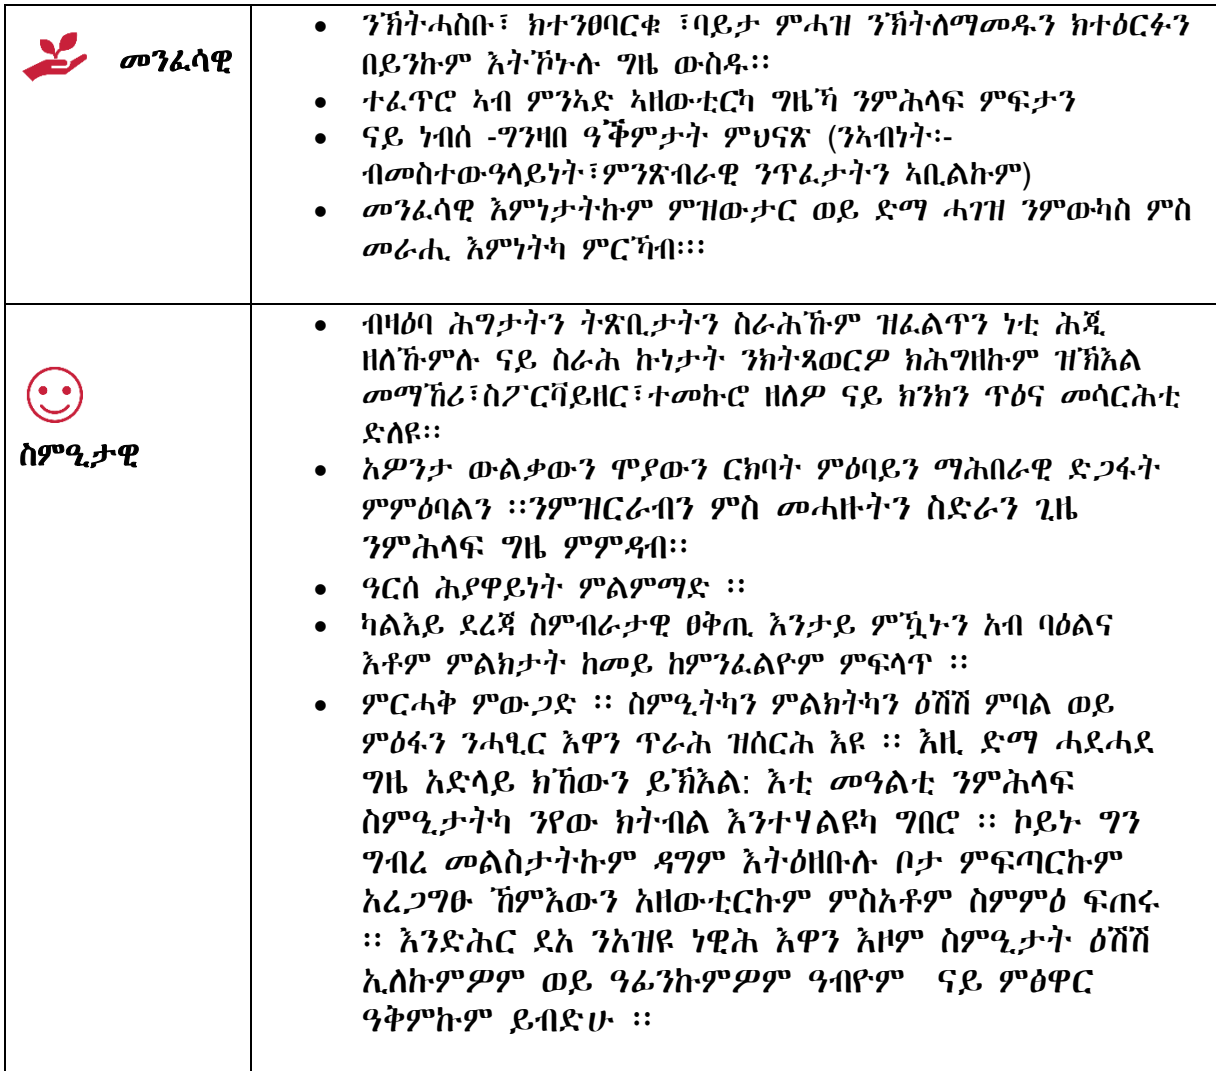 መንፈሳዊ
• ንኽትሓስቡ፣ ክተንፀባርቁ ፣ባይታ ምሓዝ ንኽትለማመዱን ክተዕርፉን
በይንኩም እትኾኑሉ ግዜ ውስዱ፡፡
• ተፈጥሮ ኣብ ምንኣድ ኣዘውቲርካ ግዜኻ ንምሕላፍ ምፍታን
• ናይ ነብሰ -ግንዛበ ዓቕምታት ምህናጽ (ንኣብነት፡-
ብመስተውዓላይነት፣ምንጽብራዊ ንጥፈታትን ኣቢልኩም)
• መንፈሳዊ እምነታትኩም ምዝውታር ወይ ድማ ሓገዝ ንምውካስ ምስ
መራሒ እምነትካ ምርኻብ፡፡፡
ስምዒታዊ
• ብዛዕባ ሕግታትን ትጽቢታትን ስራሕኹም ዝፈልጥን ነቲ ሕጂ
ዘለኹምሉ ናይ ስራሕ ኩነታት ንክትጻወርዎ ክሕግዘኩም ዝኽእል
መማኸሪ፣ስፖርቫይዘር፣ተመኩሮ ዘለዎ ናይ ክንክን ጥዕና መሳርሕቲ
ድለዩ፡፡
• አዎንታ ውልቃውን ሞያውን ርክባት ምዕባይን ማሕበራዊ ድጋፋት
ምምዕባልን ፡፡ንምዝርራብን ምስ መሓዙትን ስድራን ጊዜ
ንምሕላፍ ግዜ ምምዳብ፡፡
• ዓርሰ ሕያዋይነት ምልምማድ ፡፡
• ካልእይ ደረጃ ስምብራታዊ ፀቅጢ እንታይ ምዃኑን አብ ባዕልና
እቶም ምልክታት ከመይ ከምንፈልዮም ምፍላጥ ፡፡
• ምርሓቅ ምውጋድ ፡፡ ስምዒትካን ምልክትካን ዕሽሽ ምባል ወይ
ምዕፋን ንሓፂር እዋን ጥራሕ ዝሰርሕ እዩ ፡፡ እዚ ድማ ሓደሓደ
ግዜ አድላይ ክኸውን ይኽእል: እቲ መዓልቲ ንምሕላፍ
ስምዒታትካ ንየው ክትብል እንተሃልዩካ ግበሮ ፡፡ ኮይኑ ግን
ግብረ መልስታትኩም ዳግም እትዕዘቡሉ ቦታ ምፍጣርኩም
አረጋግፁ ኸምእውን አዘውቲርኩም ምስአቶም ስምምዕ ፍጠሩ
፡፡ እንድሕር ደአ ንአዝዩ ነዊሕ እዋን እዞም ስምዒታት ዕሽሽ
ኢለኩምዎም ወይ ዓፊንኩምዎም ዓብዮም ናይ ምፅዋር
ዓቅምኩም ይብድሁ ፡፡